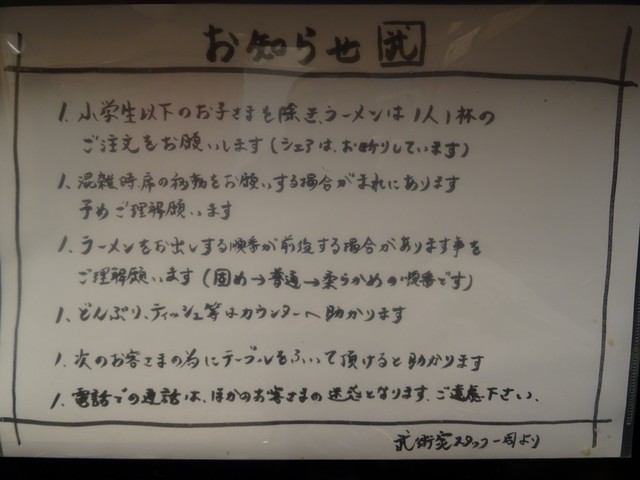 お知らせ 武
1. 小学生以下のお子さまを除き、ラーメンは1人1杯の
ご注文をお願いします(シェアは、お断りしています)
1. 混雑時席の移動をお願いする場合がまれにあります
予めご理解願います
1. ラーメンをお出しする順番が前後する場合があります事を
ご理解願います(固め→普通→柔らかめの順番です)
1. どんぶり、ティッシュ等はカウンターへ助かります
1. 次のお客さまの為にテーブルをふいて頂けると助かります
1. 電話での通話は、ほかのお客さまの迷惑となります、ご遠慮下さい、
武術家スタッフ一同より